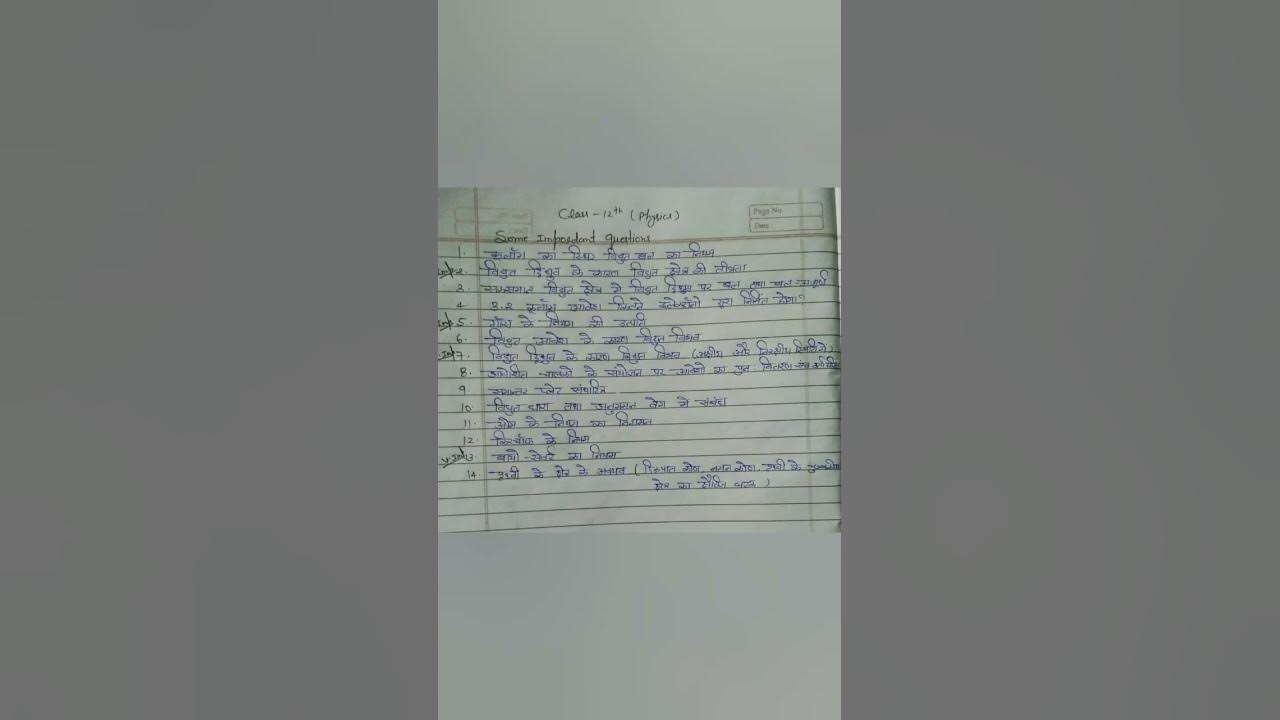 Class - 12th (Physics)
Page No.
Date
Some Important Questions
1. कूलॉम का स्थिर विद्युत बल का नियम
Imp 2. विद्युत द्विध्रुव के कारण विद्युत क्षेत्र की तीव्रता
3. एकसमान विद्युत क्षेत्र में विद्युत द्विध्रुव पर बल तथा बल आघूर्ण
4. 3.2 कूलॉम आवेश कितने इलेक्ट्रॉनो द्वारा निर्मित होगा?
Imp 5. गॉस के नियम की उत्पत्ति
6. विद्युत आवेश के कारण विद्युत विभव
Imp 7. विद्युत द्विध्रुव के कारण विद्युत विभव (अक्षीय और निरक्षीय स्थिति में)
8. आवेशित चालकों के संयोजन पर आवेशों का पुन वितरण
9. समान्तर प्लेट संधारित्र
10. विद्युत धारा तथा अनुगमन वेग में संबंध
11. ओम के नियम का निगमन
12. किरचॉफ के नियम
v.Imp 13. बायो-सेवर्ट का नियम
14. पृथ्वी के क्षेत्र के अवयव (दिक्पात कोण, नमन कोण, पृथ्वी के चुम्बकीय
क्षेत्र का क्षैतिज घटक)